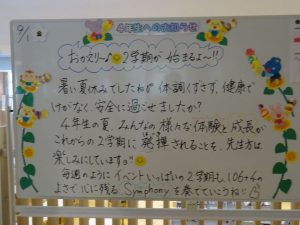 9/1
4年生へのお知らせ
おかえり〜♪ 2学期が始まるよ〜!!
暑い夏休みでしたねが 体調くずさず、健康で
けがなく、安全に過ごせましたか?
4年生の夏、みんなの様々な体験と成長が
これからの2学期に発揮されることを、先生方は
楽しみにしています。
毎週のようにイベントいっぱいの2学期も 106+4の
よさで心に残る Symphonyを奏でていこうね!!